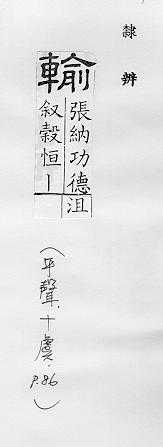 隸辨
輸
張納功德沮
叙穀恒丨
(平聲.十虞.P.86)